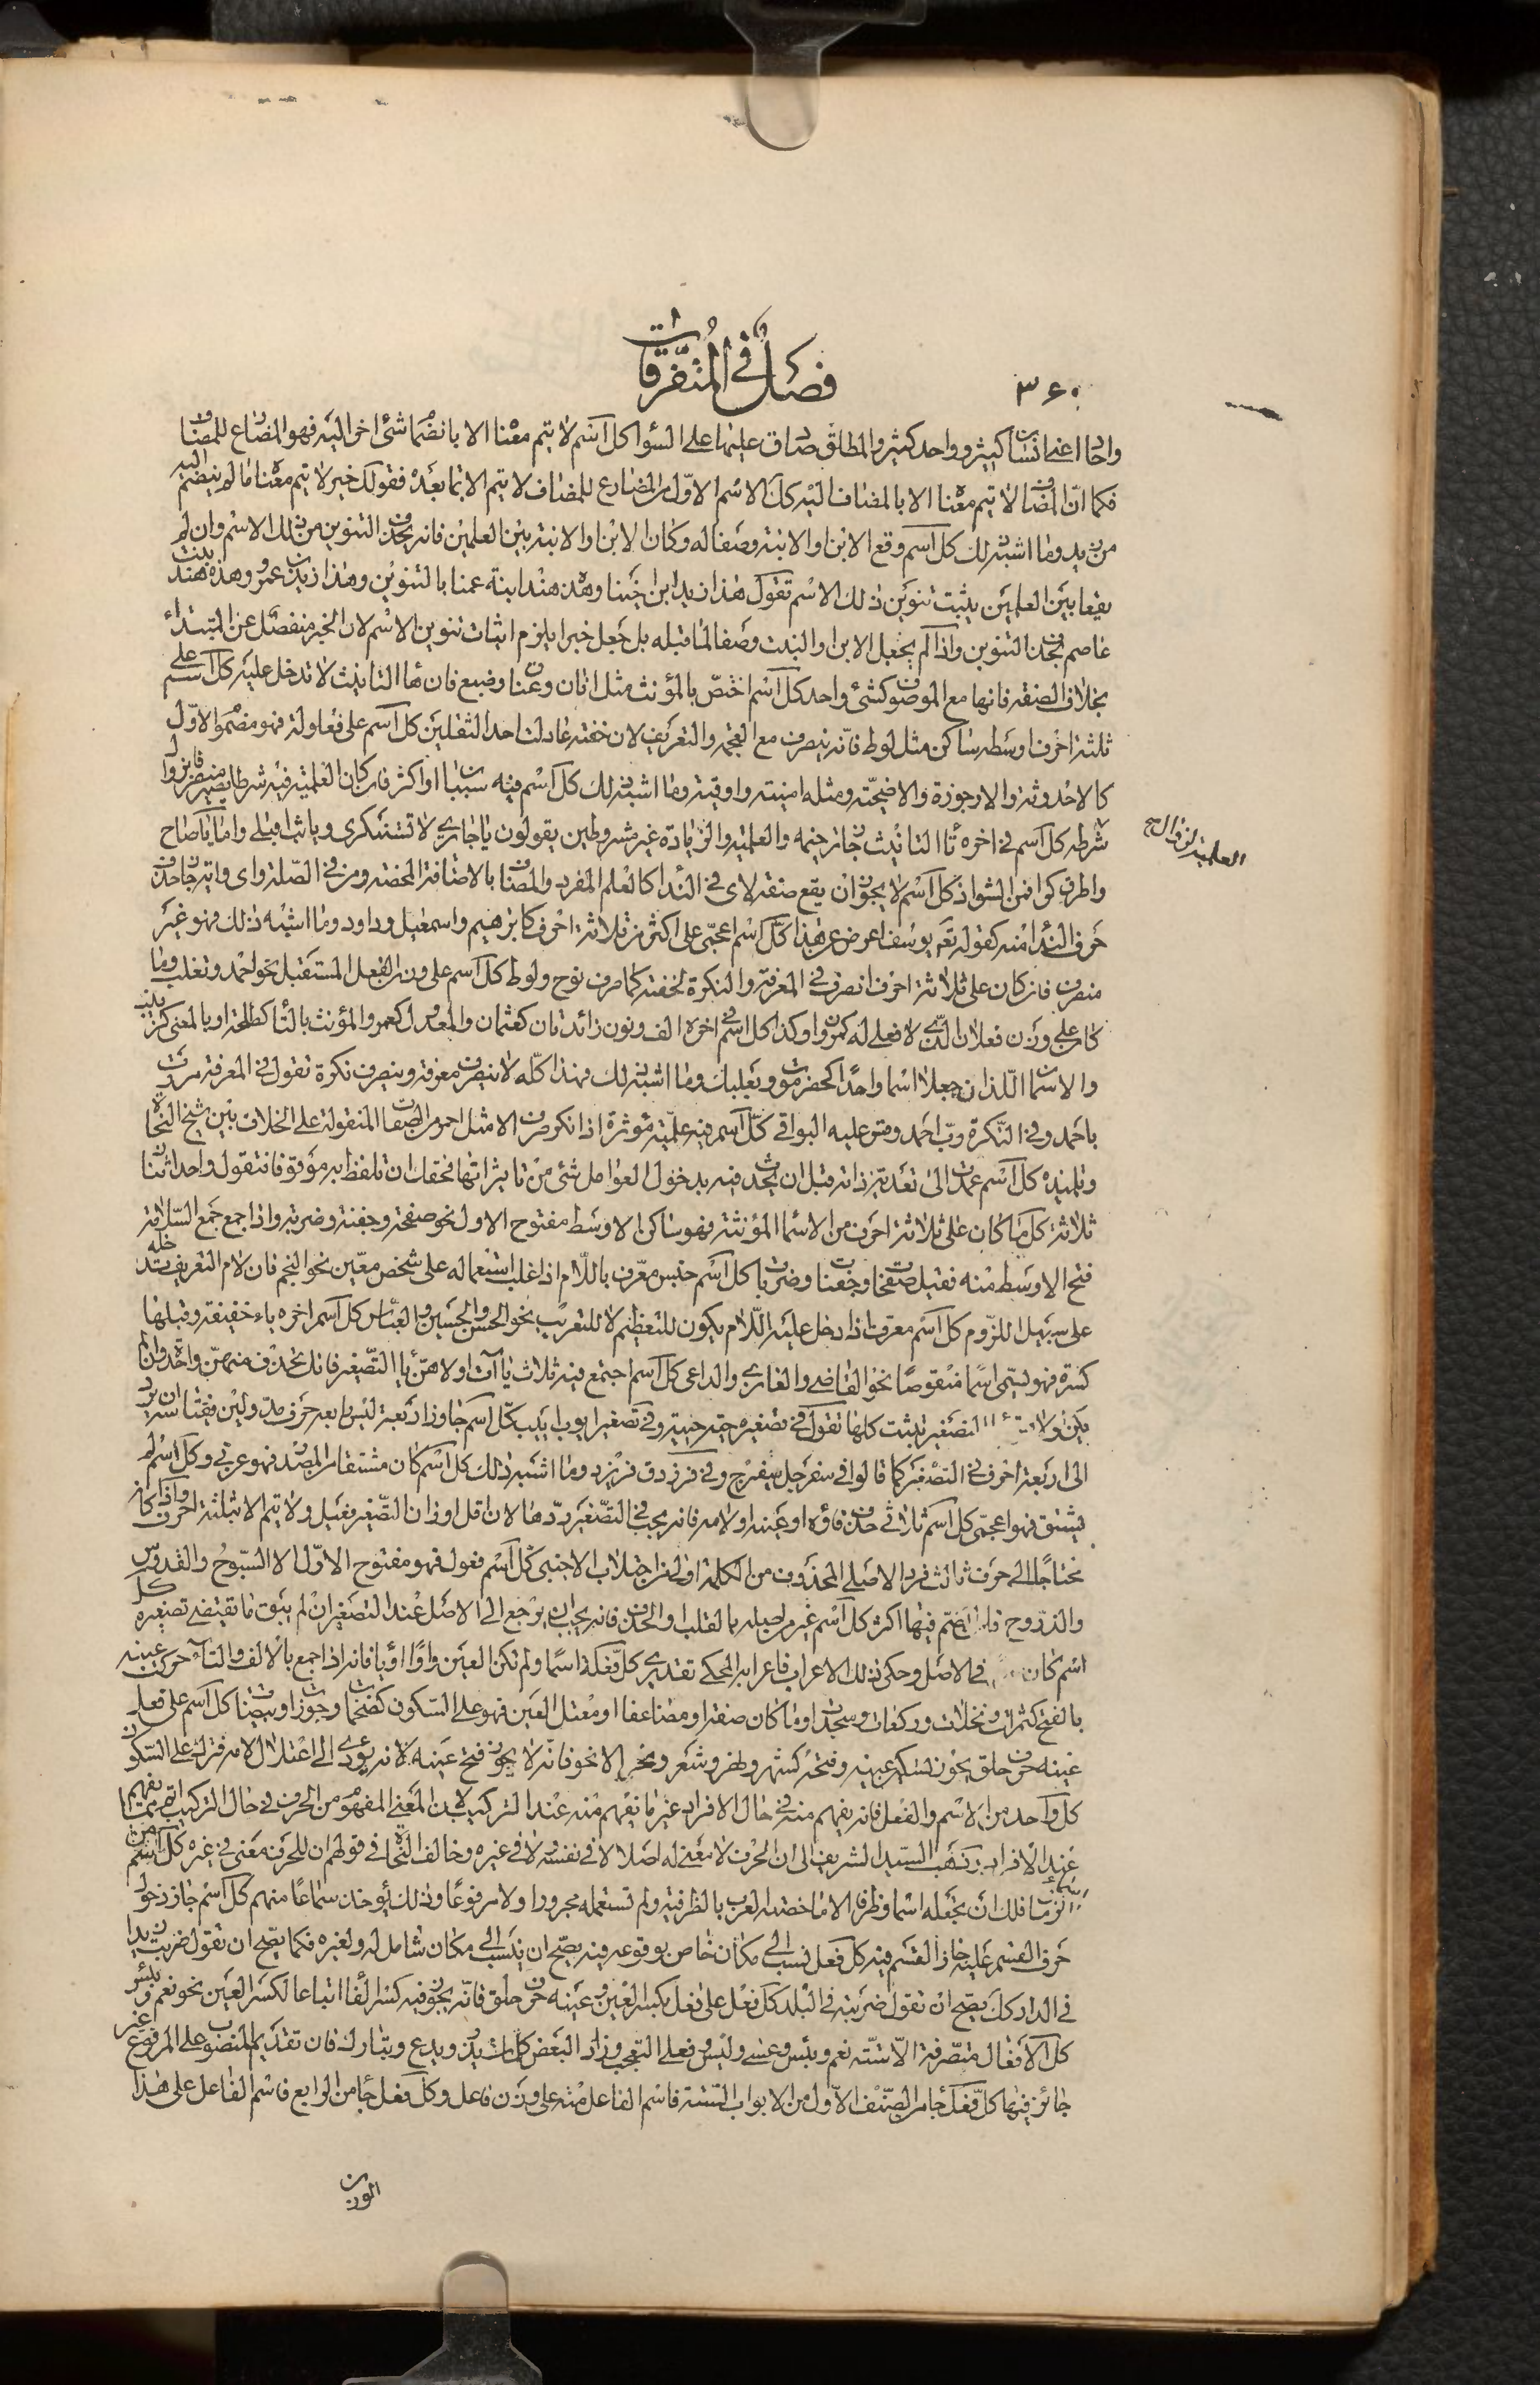 ٣٦٠
فصل في المتفرقات
واحدا اعني انسانا كثير وواحد كثير والمطلق صادق عليهما على السواء كل اسم لا يتم معناه الا بانضمام شيء اخر اليه فهو المضارع للمضاف
فكما ان المضاف لا يتم معناه الا بالمضاف اليه كذلك الاسم الاول من المضارع للمضاف لا يتم الا بما بعده فقولك خير لا يتم معناه ما لم ينضم اليه
من زيد وما اشبه ذلك كل اسم وقع الابن او الابنة وصفا له وكان الابن او الابنة بين العلمين فانه يحذف التنوين من ذلك الاسم وان لم
يقعا بين العلمين يثبت تنوين ذلك الاسم تقول هذا زيد ابن اخينا وهذه هند ابنة عمنا بالتنوين وهذا زيد بن عمرو وهذه هند بنت
عاصم بحذف التنوين واذا لم يجعل الابن او البنت وصفا لما قبله بل جعل خبرا يلزم اثبات تنوين الاسم لان الخبر منفصل عن المبتداء
بخلاف الصفة فانها مع الموصوف كشيء واحد كل اسم اختص بالمؤنث مثل اتان وعناق وضبع فان هاء التانيث لا تدخل عليه كل اسم على
ثلثة احرف اوسطه ساكن مثل لوط فانه ينصرف مع العجمة والتعريف لان خفته عادلت احد الثقلين كل اسم على افعولة فهو مضموم الاول
كالاحدوثة والارجوزة والاضحية ومثله امنية واوقية وما اشبه ذلك كل اسم فيه سببان او اكثر فان كان العلمية فيه شرطا يصير منصرفا بزوال
شرطه كل اسم في اخره تاء التانيث جاز ترخيمه والعلمية والزيادة غير مشروطين يقولون يا جاري لا تستنكري ويا ثب اقبلي واما يا صاح
واطرق كرا فمن الشواذ كل اسم لا يجوز ان يقع صفة لاي في النداء كالعلم المفرد والمضاف بالاضافة المحضة ومن في الصلة واى وايتها جاز حذف
حرف النداء منه كقوله تعم يوسف اعرض عن هذا كل اسم اعجمي على اكثر من ثلاثة احرف كابرهيم واسمعيل وداود وما اشبه ذلك فهو غير
منصرف فان كان على ثلاثة احرف انصرف في المعرفة والنكرة لخفته كما صرف نوح ولوط كل اسم على وزن الفعل المستقبل نحو احمد وتغلب وما
كان على وزن فعلان الذي لا فعلى له كمروان وكذا كل اسم في اخره الف ونون زائدتان كعثمان والمعدول كعمر والمؤنث بالتاء كطلحة او بالمعنى كزينب
والاسمان اللذان جعلا اسما واحدا كحضرموت وبعلبك وما اشبه ذلك فهذا كله لا ينصرف معرفة وينصرف نكرة تقول في المعرفة مررت
باحمد وفي النكرة رب احمد وقس عليه البواقي كل اسم فيه علمية مؤثرة اذا نكر صرف الا مثل احمر من الصفات المنقولة على الخلاف بين شيخ النحاة
وتلميذه كل اسم عمدت الى تعدية ذاته قبل ان يحدث فيه بدخول العوامل شيء من تاثيراتها فحقك ان تلفظ به موقوفا فتقول واحد اثنان
ثلاثة كل ما كان على ثلاثة احرف من الاسماء المؤنثة فهو ساكن الاوسط مفتوح الاول نحو صفحة وجفنة وضربة واذا جمع جمع السلامة
فتح الاوسط منه فقيل صفحات وجفنات وضربات كل اسم جنس معرف باللام اذا غلب استعماله على شخص معين نحو النجم فان لام التعريف تدخله
على سبيل اللزوم كل اسم معرفة اذا دخل عليه اللام يكون للتعظيم لا للتعريف نحو الحسن والحسين والعباس كل اسم اخره ياء خفيفة وقبلها
كسرة فهو يسمى اسما منقوصا نحو القاضي والغازي والداعي كل اسم اجتمع فيه ثلاث ياآت اولاهن ياء التصغير فانك تحذف منهن واحدة وان لم
يكن اولاهن ياء التصغير تثبت كلها تقول في تصغيره حية حيية وفي تصغير ايوب اييب كل اسم جاوز اربعة ليس رابعه حرف مد ولين فقياسه ان يرد
الى اربعة احرف في التصغير كما قالوا في سفرجل سفيرج وفي فرزدق فريزد وما اشبه ذلك كل اسم كان مشتقا من المصدر فهو عربي وكل اسم لم
يشتق فهو اعجمي كل اسم ثلاثي حذف فاؤه او عينه او لامه فانه يجب في التصغير ردها لان اقل اوزان التصغير فعيل ولا يتم الا بثلثة احرف واذا كان
محتاجا الى حرف ثالث فرد الاصلي المحذوف من الكلمة اولى من اجتلاب الاجنبي كل اسم فعول فهو مفتوح الاول الا السبوح والقدوس
والذروح فان الضم فيها اكثر كل اسم غير من اصله بالقلب او الحذف فانه يجب ان يرجع الى الاصل عند التصغير ان لم يبق ما تقتضى تصغيره كل
اسم كان في الاصل وحكى ذلك الاعراب فاعرابه المحكي تقديري كل فعلة اسما ولم تكن العين واوا او ياء فانه اذا جمع بالالف والتاء حركت عينه
بالفتح كتمرات ونخلات وركعات وسجدات وما كان صفة او مضاعفا او معتل العين فهو على السكون كضخمات وجوزات وبيضات كل اسم على فعل
عينه حرف حلق يجوز تسكين عينه وفتحه كشهر وطهر وشعر وبحر الا نحو فانه لا يجوز فتح عينه لانه يؤدي الى اعتلال لامه فترك على السكون
كل واحد من الاسم والفعل فانه يفهم منه في حال الافراد غير ما نفهم منه عند التركيب لان المعنى المفهوم من الحرف في حال التركيب اتم مما يفهم
عند الافراد وذهب السيد الشريف الى ان الحرف لا معنى له اصلا لا في نفسه ولا في غيره وخالف النحاة في قولهم ان للحرف معنى في غيره كل اسم من
اسماء الزمان فلك ان تجعله اسما وظرفا الا ما خصته العرب بالظرفية ولم تستعمله مجرورا ولا مرفوعا وذلك يؤخذ سماعا منهم كل اسم جاز دخول
حرف القسم عليه جاز القسم فيه كل فعل نسب الى مكان خاص بوقوعه فيه يصح ان ينسب الى مكان شامل له ولغيره فكما يصح ان تقول ضربت زيدا
في الدار كذلك يصح ان تقول ضربته في البلد كل فعل على فعل بكسر العين وعينه حرف حلق فانه يجوز فيه كسر الفاء اتباعا لكسر العين نحو نعم وبئس
كل الافعال متصرفة الا ستة نعم وبئس وعسى وليس وفعلى التعجب وزاد البعض كلمات يذر ويدع وتبارك فان تقديم المنصوب على المرفوع غير
جائز فيها كل فعل جاء من الصنف الاول من الابواب الستة فاسم الفاعل منه على وزن فاعل وكل فعل جاء من الرابع فاسم الفاعل على هذا
الوزن